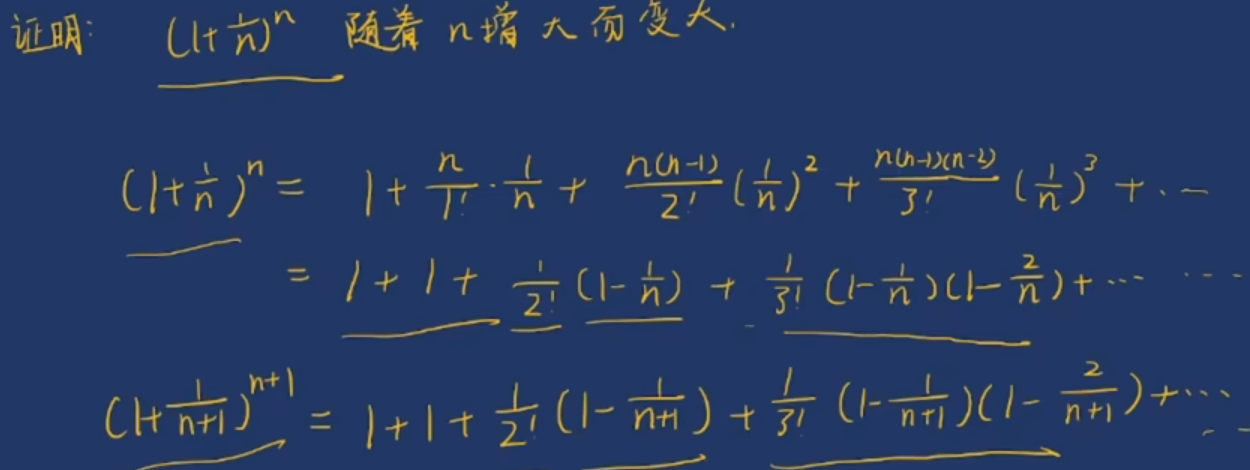 证明: (1+1/n)^n 随着 n增大而变大.
(1+1/n)^n = 1 + n/1! · 1/n + n(n-1)/2! (1/n)^2 + n(n-1)(n-2)/3! (1/n)^3 + ...
= 1 + 1 + 1/2! (1-1/n) + 1/3! (1-1/n)(1-2/n) + ... ...
(1+1/(n+1))^(n+1) = 1 + 1 + 1/2! (1-1/(n+1)) + 1/3! (1-1/(n+1))(1-2/(n+1)) + ...